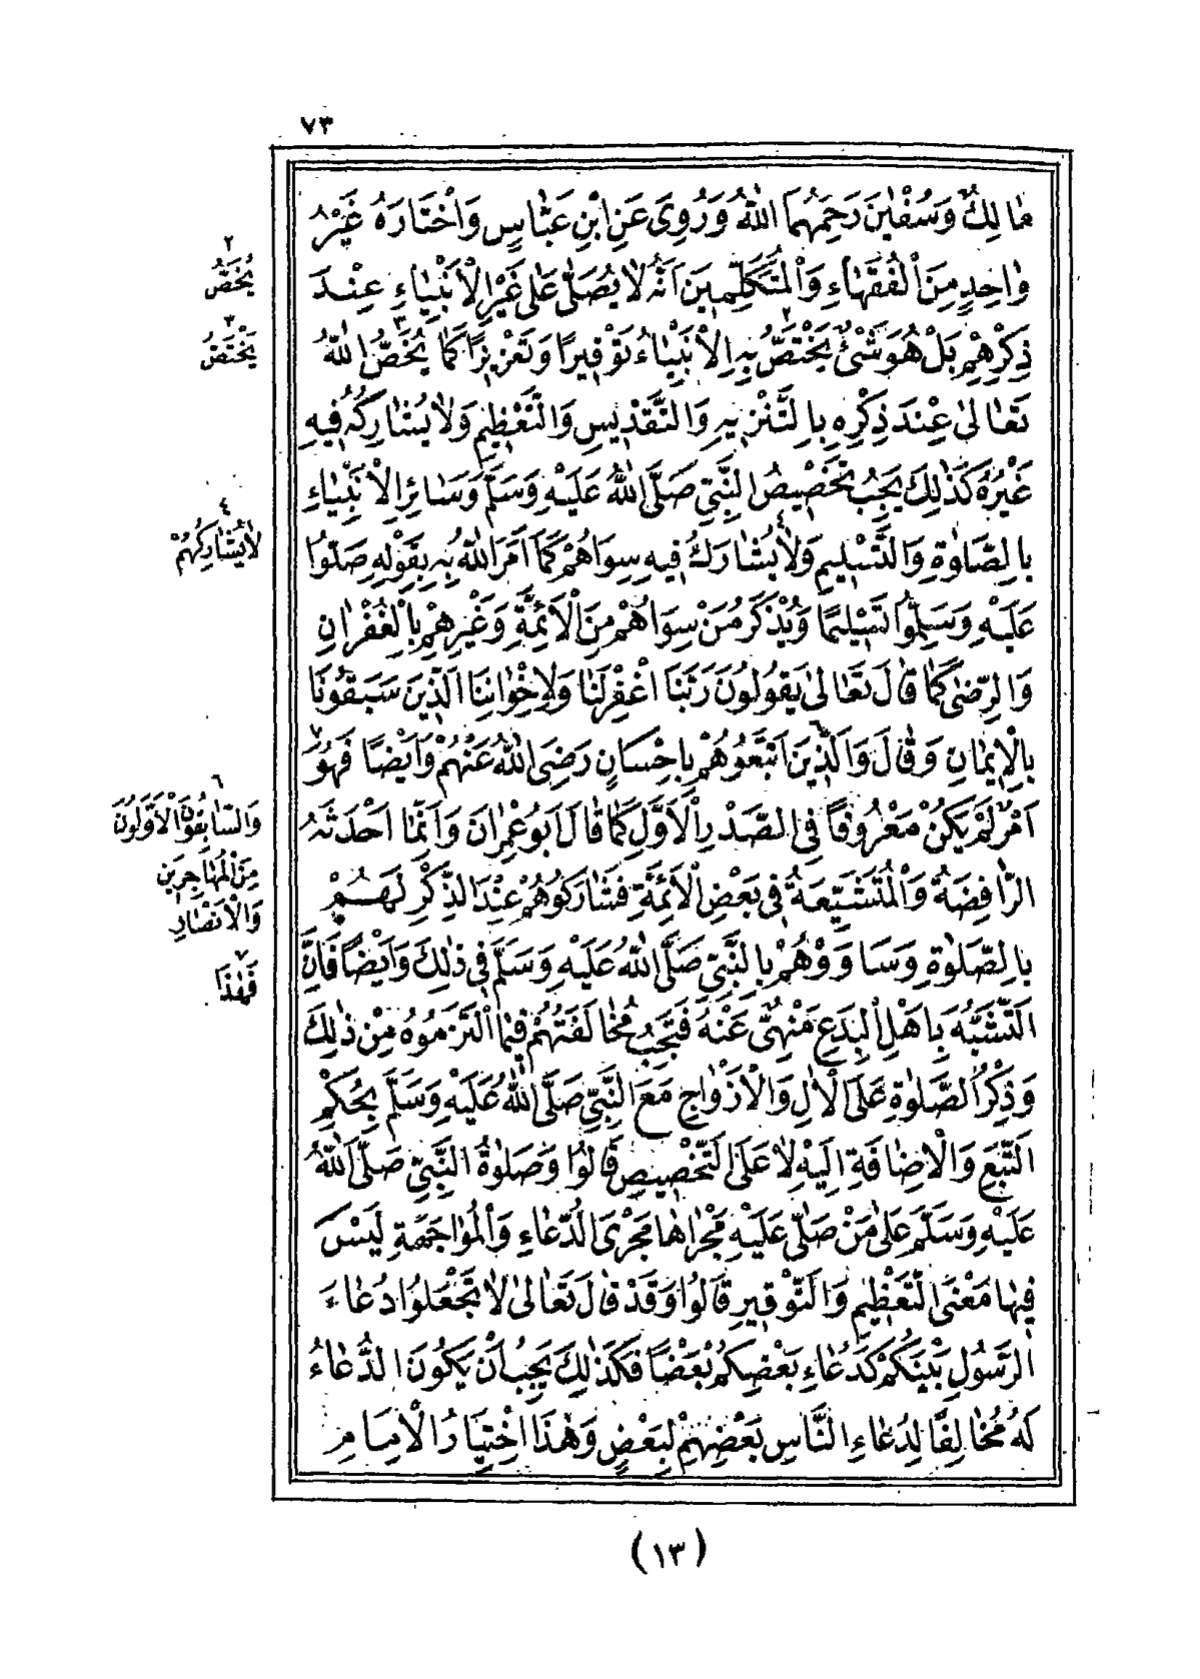 ٧٣
مَالِكٌ وَسُفْيٰنُ رَحِمَهُمَا اللّٰهُ وَرُوِىَ عَنِ ابْنِ عَبَّاسٍ وَاخْتَارَهُ غَيْرُ
وَاحِدٍ مِنَ الْفُقَهَاءِ وَالْمُتَكَلِّمِينَ اَنَّهُ لَا يُصَلّٰى عَلٰى غَيْرِ الْاَنْبِيَاءِ عِنْدَ
ذِكْرِهِمْ بَلْ هُوَ شَىْءٌ يَخْتَصُّ ٢ بِهِ الْاَنْبِيَاءُ تَوْقِيرًا وَتَعْزِيزًا كَمَا يُخَصُّ ٣ اللّٰهُ
تَعَالٰى عِنْدَ ذِكْرِهِ بِالتَّنْزِيهِ وَالتَّقْدِيسِ وَالتَّعْظِيمِ وَلَا يُشَارِكُهُ فِيهِ
غَيْرُهُ كَذٰلِكَ يَجِبُ تَخْصِيصُ النَّبِىِّ صَلَّى اللّٰهُ عَلَيْهِ وَسَلَّمَ وَسَائِرِ الْاَنْبِيَاءِ
بِالصَّلٰوةِ وَالتَّسْلِيمِ وَلَا يُشَارَكُ ٤ فِيهِ سِوَاهُمْ كَمَا اَمَرَ اللّٰهُ بِهِ بِقَوْلِهِ صَلُّوا
عَلَيْهِ وَسَلِّمُوا تَسْلِيمًا وَيُذْكَرُ مَنْ سِوَاهُمْ مِنَ الْاَئِمَّةِ وَغَيْرِهِمْ بِالْغُفْرَانِ
وَالرِّضٰى كَمَا قَالَ تَعَالٰى يَقُولُونَ رَبَّنَا اغْفِرْ لَنَا وَلِاِخْوَانِنَا الَّذِينَ سَبَقُونَا
بِالْاِيمَانِ وَقَالَ ٦ وَالَّذِينَ اتَّبَعُوهُمْ بِاِحْسَانٍ رَضِىَ اللّٰهُ عَنْهُمْ وَاَيْضًا فَهُوَ ٧
اَمْرٌ لَمْ يَكُنْ مَعْرُوفًا فِى الصَّدْرِ الْاَوَّلِ كَمَا قَالَ اَبُو عِمْرَانَ وَاِنَّمَا اَحْدَثَهُ
الرَّافِضَةُ وَالْمُتَشَيِّعَةُ فِى بَعْضِ الْاَئِمَّةِ فَشَارَكُوهُمْ عِنْدَ الذِّكْرِ لَهُمْ
بِالصَّلٰوةِ وَسَاوَوْهُمْ بِالنَّبِىِّ صَلَّى اللّٰهُ عَلَيْهِ وَسَلَّمَ فِى ذٰلِكَ وَاَيْضًا فَاِنَّ
التَّشَبُّهَ بِاَهْلِ الْبِدَعِ مَنْهِىٌّ عَنْهُ فَتَجِبُ مُخَالَفَتُهُمْ فِيمَا الْتَزَمُوهُ مِنْ ذٰلِكَ
وَذِكْرُ الصَّلٰوةِ عَلَى الْاٰلِ وَالْاَزْوَاجِ مَعَ النَّبِىِّ صَلَّى اللّٰهُ عَلَيْهِ وَسَلَّمَ بِحُكْمِ
التَّبَعِ وَالْاِضَافَةِ اِلَيْهِ لَا عَلَى التَّخْصِيصِ قَالُوا وَصَلٰوةُ النَّبِىِّ صَلَّى اللّٰهُ
عَلَيْهِ وَسَلَّمَ عَلٰى مَنْ صَلّٰى عَلَيْهِ مَجْرَاهَا مَجْرَى الدُّعَاءِ وَالْمُوَاجَهَةِ لَيْسَ
فِيهَا مَعْنَى التَّعْظِيمِ وَالتَّوْقِيرِ قَالُوا وَقَدْ قَالَ تَعَالٰى لَا تَجْعَلُوا دُعَاءَ
الرَّسُولِ بَيْنَكُمْ كَدُعَاءِ بَعْضِكُمْ بَعْضًا فَكَذٰلِكَ يَجِبُ اَنْ يَكُونَ الدُّعَاءُ
لَهُ مُخَالِفًا لِدُعَاءِ النَّاسِ بَعْضِهِمْ لِبَعْضٍ وَهٰذَا اخْتِيَارُ الْاِمَامِ
٢
يُخَصُّ
٣
يَخْتَصُّ
٤
لَا يُشَارِكُهُمْ
٦
وَالسَّابِقُونَ الْاَوَّلُونَ
مِنَ الْمُهَاجِرِينَ
وَالْاَنْصَارِ
٧
فَهٰذَا
(١٣)